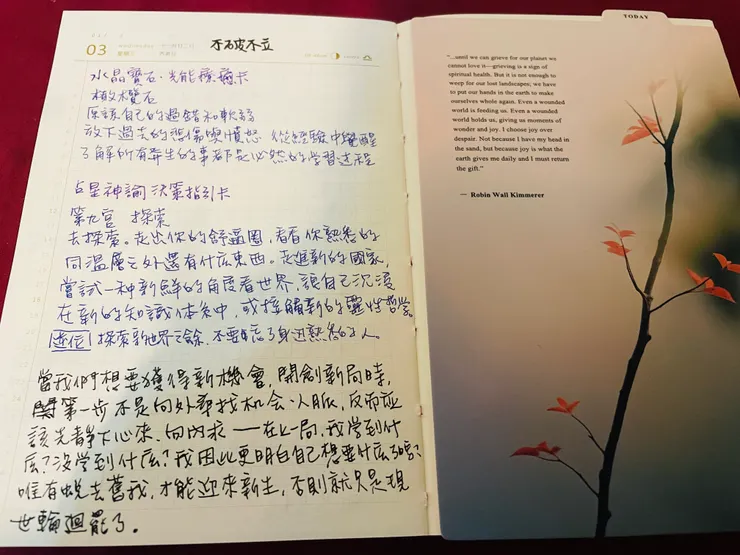 03
不破不立
水晶寶石・光能療癒卡
橄欖石
原諒自己的過錯和軟弱
放下過去的悲傷與憤怒 從經驗中覺醒
了解所有發生的事都是必然的學習過程
占星神諭 決策指引卡
第九宮 探索
去探索。走出你的舒適圈,看看你熟悉的
同溫層之外還有什麼東西。走進新的國家,
嘗試一種新鮮的角度看世界,讓自己沉浸
在新的知識体系中,或接觸新的靈性哲學。
逆位 探索新世界之餘,不要忘了身边熟悉的人。
當我們想要獲得新機會,開創新局時,
第一步不是向外部找机会、人脈,反而应
該先靜下心來,向內求——在上一局,我学到什
麼?沒学到什麼?我因此更明白自己想要什么了嗎?
唯有蛻去舊我,才能迎來新生,否則就只是現
世輪迴罷了.
TODAY
"...until we can grieve for our planet we
cannot love it—grieving is a sign of
spiritual health. But it is not enough to
weep for our lost landscapes; we have
to put our hands in the earth to make
ourselves whole again. Even a wounded
world is feeding us. Even a wounded
world holds us, giving us moments of
wonder and joy. I choose joy over
despair. Not because I have my head in
the sand, but because joy is what the
earth gives me daily and I must return
the gift."
— Robin Wall Kimmerer